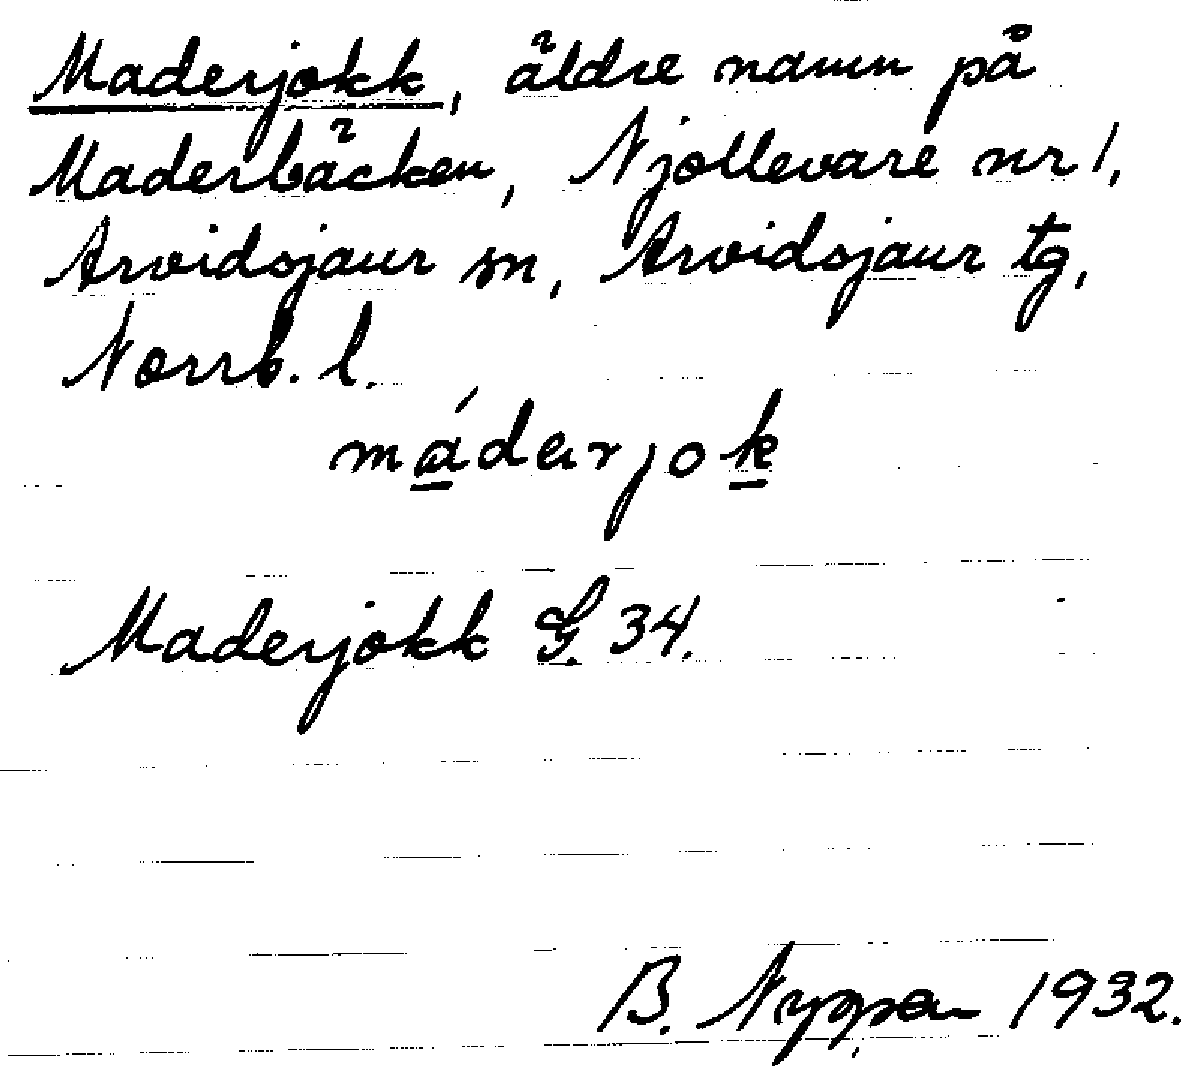 Maderjokk, äldre namn på
Maderbäcken, Njallevare nr 1,
Arvidsjaur sn, Arvidsjaur tg,
Norrb. l.
máderjok
Maderjokk G. 34.
B. 1932.